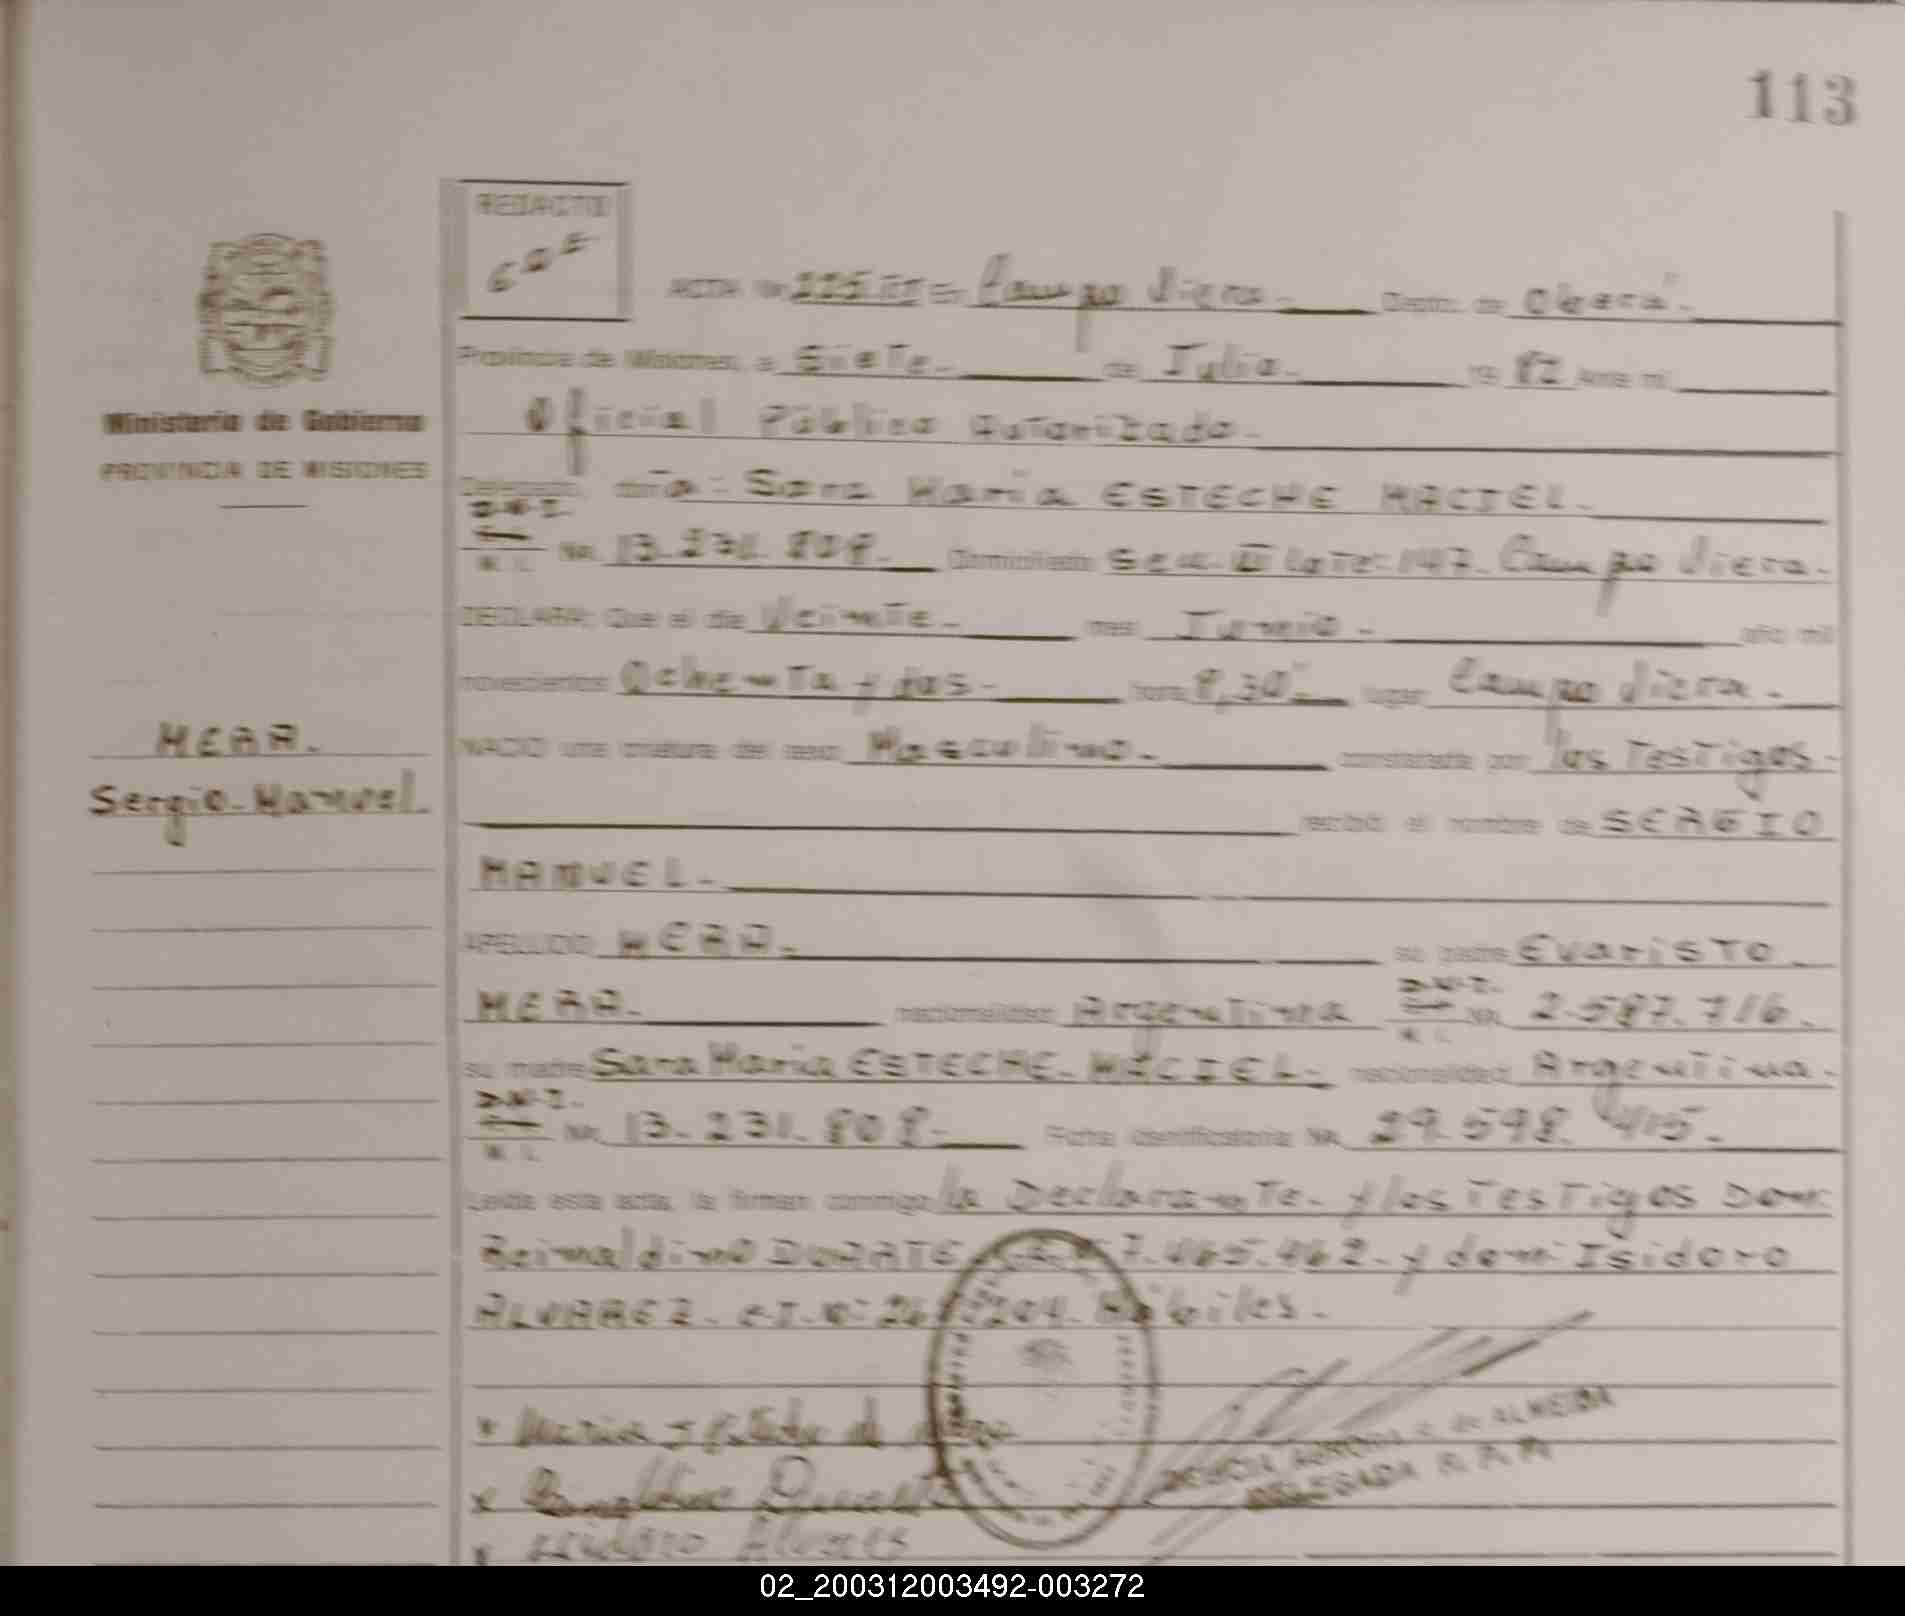 113
REDACTO
ACTA Nº En Campo Viera.- Depto. de Oberá.-
Ministerio de Gobierno
PROVINCIA DE MISIONES
Provincia de Misiones, a Siete.- de Julio.- 19 82 Ante mí
Oficial Público Autorizado.-
doña: Sara María ESTECHE MACIEL.-
D.N.I.
M. I. Nº 13.231.808.- Domiciliado Secc. II Lote: 147. Campo Viera.-
DECLARA: Que el día Veinte.- mes Junio.- año mil
novecientos Ochenta y dos.- hora 8,30 lugar Campo Viera.-
NACIO una criatura del sexo Masculino.- constatada por los Testigos.-
recibió el nombre de SERGIO
MANUEL.-
MERA.
Sergio Manuel.
APELLIDO MERA.- su padre Evaristo
MERA.- nacionalidad Argentina D.N.I. M. I. Nº 2.587.716.
su madre Sara María ESTECHE MACIEL.- nacionalidad Argentina.-
D.N.I.
M. I. Nº 13.231.808.- Ficha identificatoria Nº 29.598.415.-
Leída esta acta, la firman conmigo la Declarante.- y los Testigos Don:
Reinaldino DUARTE 7.465.462.- y don: Isidoro
ALVAREZ. C.I. Nº Hábiles.-
de ALMEIDA
DELEGADA R. P. P.
Isidoro Alvares
02_200312003492-003272